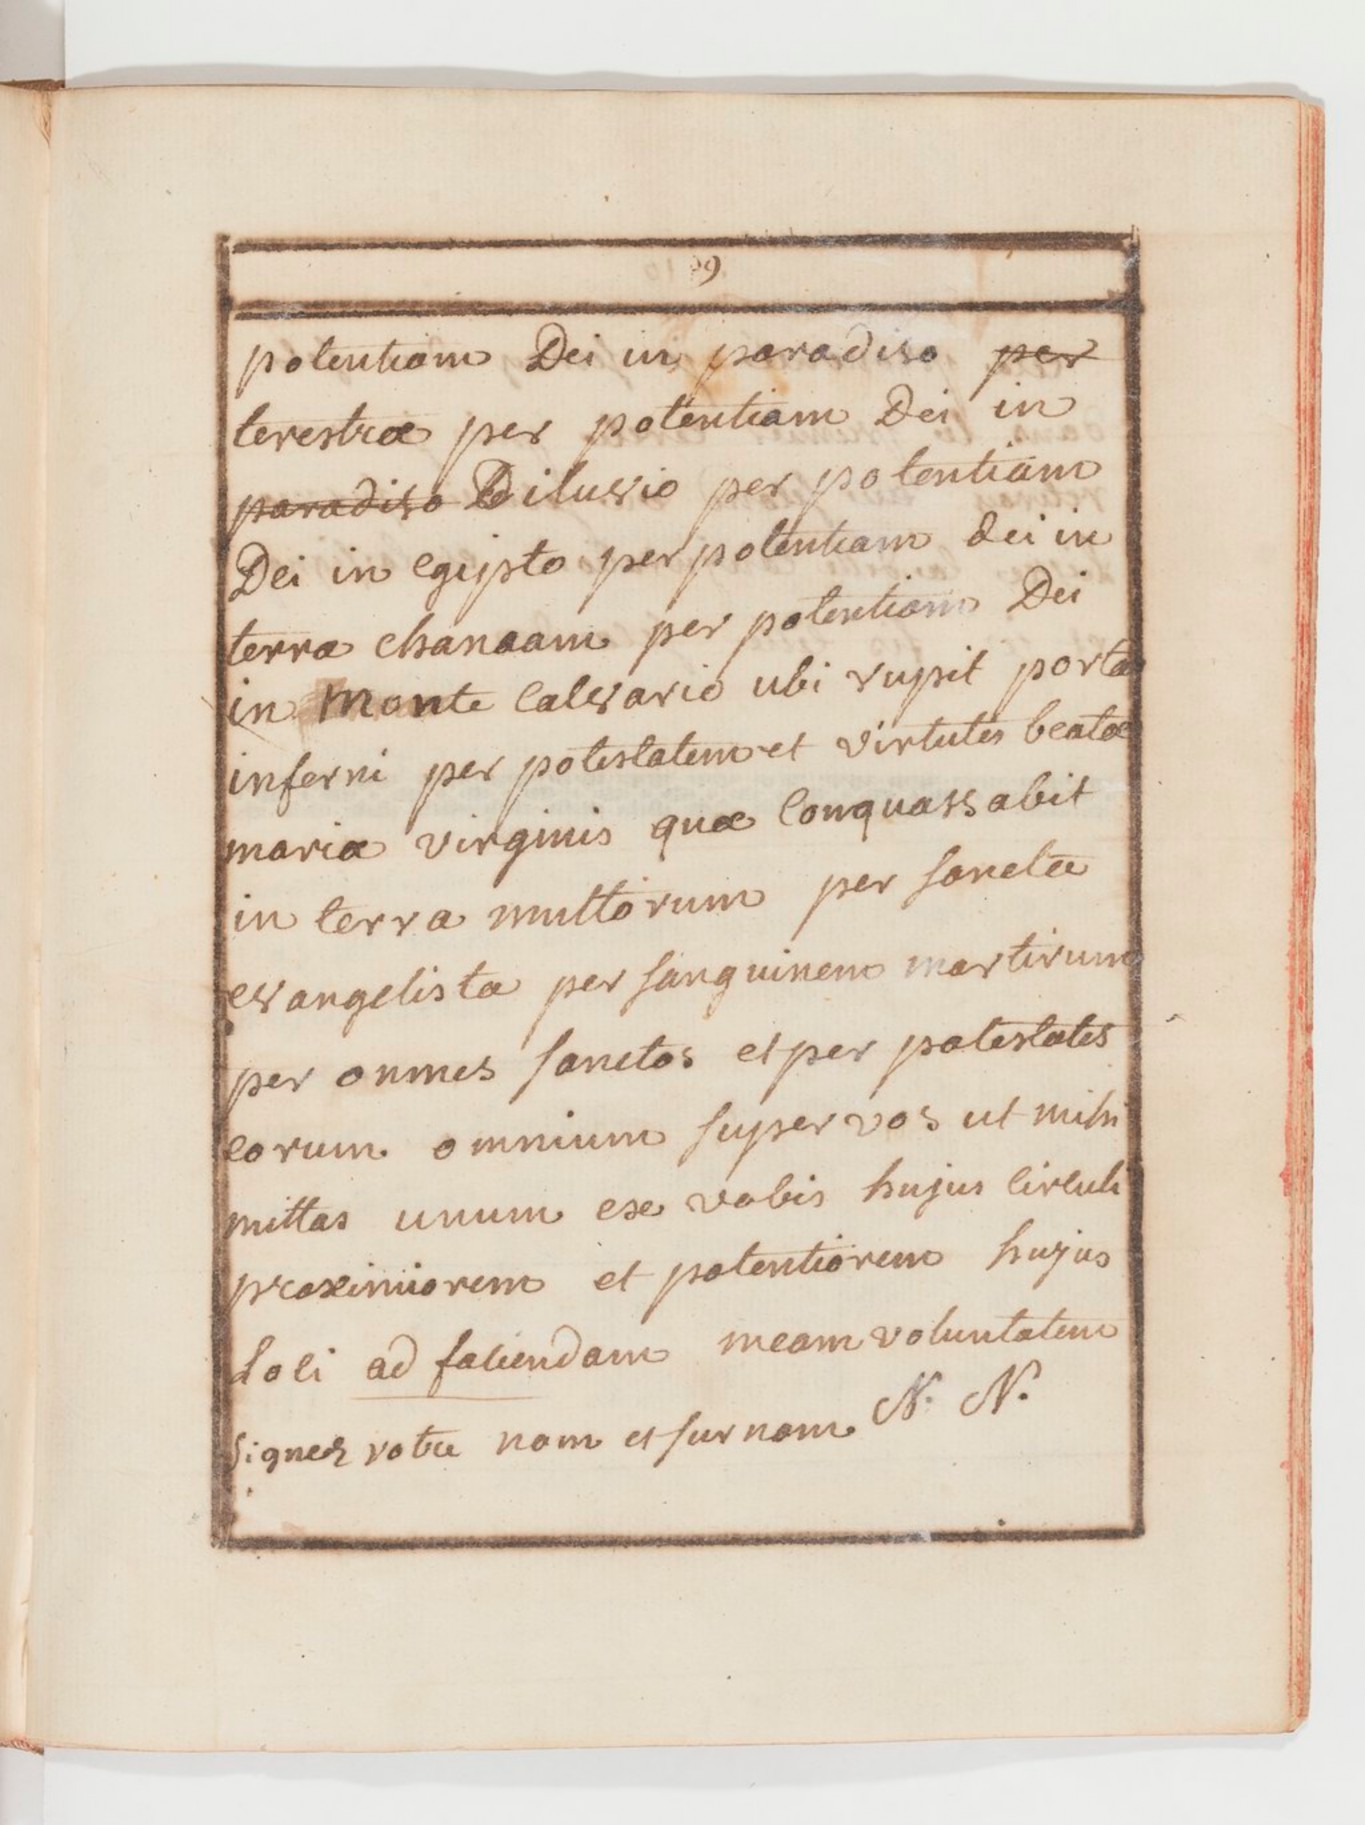 9
potentiam Dei in paradiso per
terestræ per potentiam Dei in
paradiso Diluvio per potentiam
Dei in egipto per potentiam dei in
terra chanaam per potentiam Dei
in Monte Calvario ubi rupit porta
inferni per potestatem et virtutes beatæ
mariæ virginis quæ Conquassabit
in terra multorum per sancta
evangelista per sanguinem martirum
per onmes sanctos et per potestates
eorum omnium super vos ut mihi
mittas unum ex vobis hujus Circuli
proximiorem et potentiorem hujus
Loci ad faciendam meam voluntatem
Signez votre nom et surnom N. N.